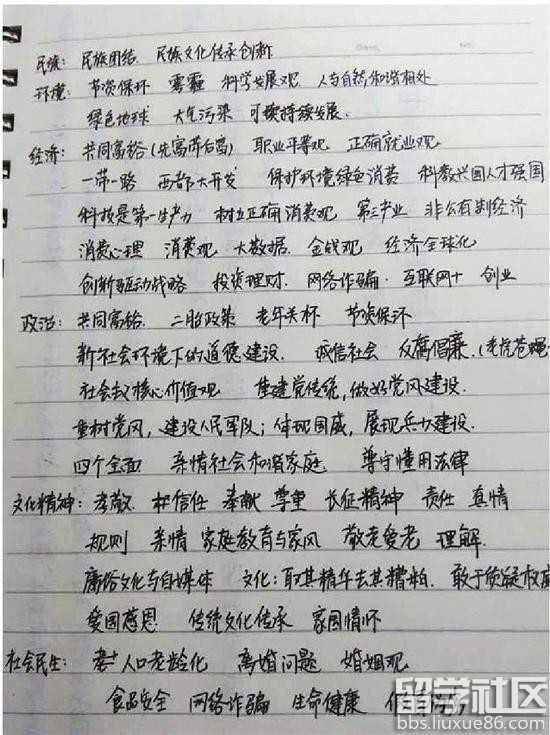 民族: 民族团结. 民族文化传承创新
环境: 节资保环 雾霾 科学发展观. 人与自然和谐相处
绿色地球 大气污染 可持续发展.
经济: 共同富裕(先富带后富) 职业平等观 正确就业观
一带一路 西部大开发 保护环境绿色消费 科教兴国人才强国
科技是第一生产力 树立正确消费观 第三产业 非公有制经济
消费心理 消费观 大数据. 金钱观 经济全球化
创新驱动战略 投资理财. 网络诈骗. 互联网+ 创业
政治: 共同富裕. 二胎政策 老年关怀 节资保环
新社会环境下的道德建设. 诚信社会 反腐倡廉.(老虎苍蝇
社会主义核心价值观 重建党传统,做好党风建设.
重树党风,建设人民军队;体现国威,展现兵力建设.
四个全面 亲情社会和谐家庭 尊守懂用法律
文化精神: 孝敬. 信任 奉献 尊重 长征精神 责任 真情
规则 亲情 家庭教育与家风 敬老爱老 理解.
庸俗文化与自媒体 文化:取其精华去其糟粕. 敢于质疑权威
爱国感恩 传统文化传承 家国情怀
社会民生: 人口老龄化 离婚问题 婚姻观
食品安全 网络诈骗 生命健康
留学社区
bbs.liuxue86.com